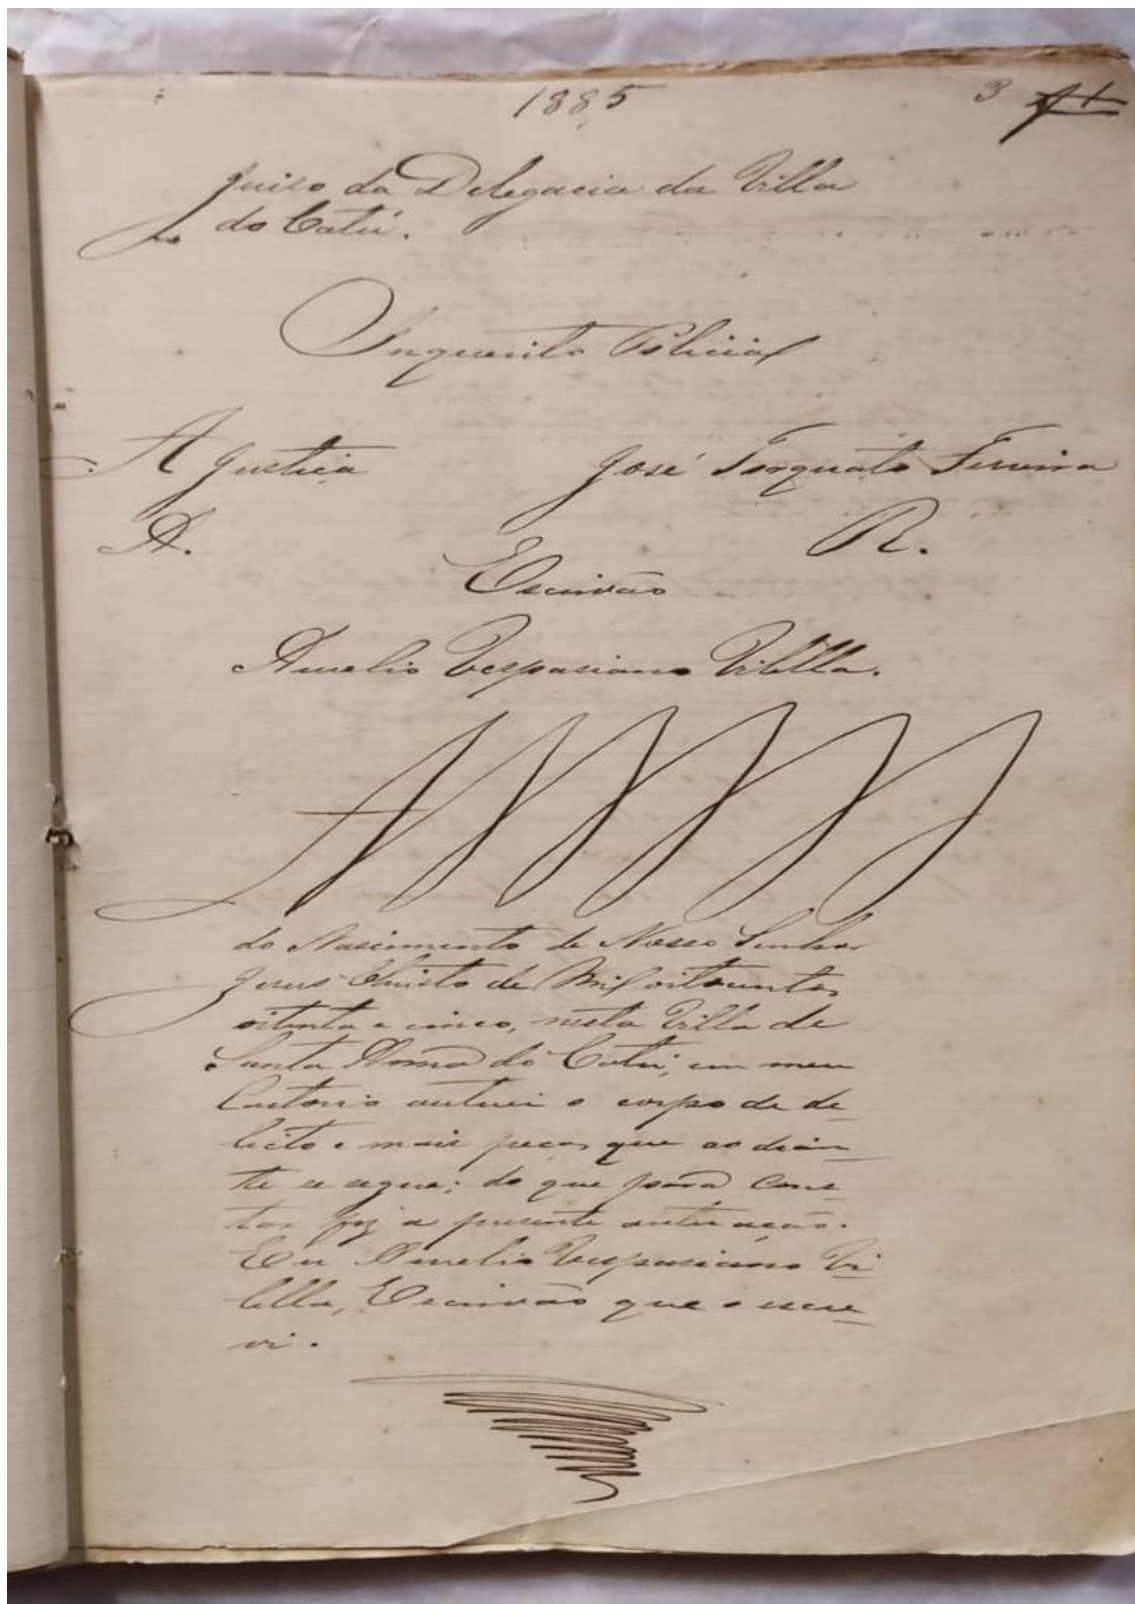 1885
3 f 1
Juiso da Delegacia da Villa
do Catú.
Inquerito Policial
A Justiça José Torquato Ferreira
A. R.
Escrivão
Aurelio Vespasiano Vilella.
Anno
do Nascimento de Nosso Senhor
Jesus Christo de Mil oitocentos
oitenta e cinco, nesta Villa de
Santa Anna do Catú, em meu
Cartorio autuei o corpo de de-
licto e mais peças que ao dian-
te se segue; do que para cons-
tar fiz a presente autuação.
Eu Aurelio Vespasiano Vi-
lella, Escrivão que o escre-
vi.